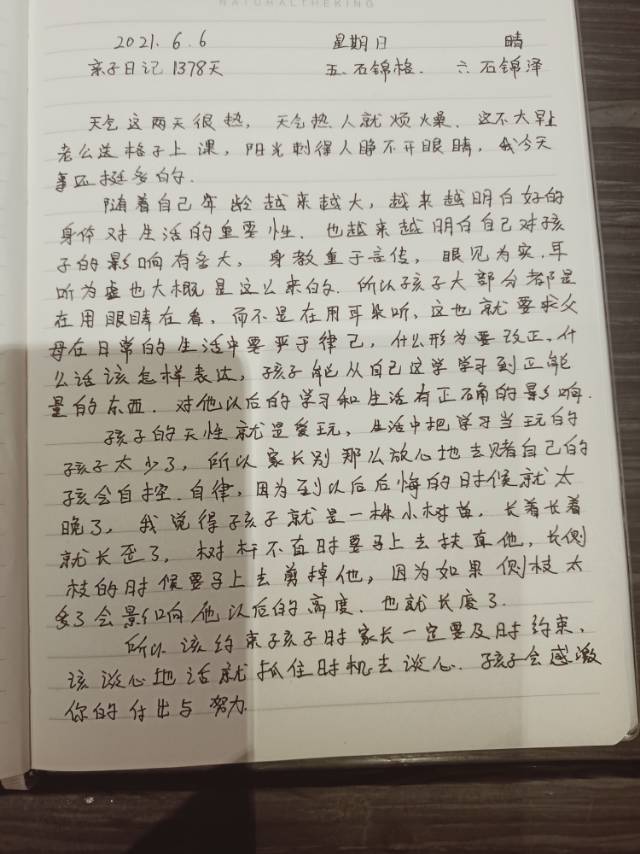 NATURALTHEKING
2021.6.6 星期日 晴
亲子日记 1378天 五.石锦格. 六.石锦泽
天气这两天很热，天气热人就烦燥．这不大早上
老公送格子上课，阳光刺得人睁不开眼睛，今天
事还挺多的.
随着自己年龄越来越大，越来越明白好的
身体对生活的重要性．也越来越明白自己对孩
子的影响有多大，身教重于言传，眼见为实.耳
听为虚也大概是这么来的．所以孩子大部分都是
在用眼睛在看，而不是在用耳朵听，这也就要求父
母在日常的生活中要严于律己，什么形为要改正.什
么话该怎样表达，孩子能从自己这学学习到正能
量的东西．对他以后的学习和生活有正确的影响.
孩子的天性就是爱玩，生活中把学习当玩的
孩子太少了，所以家长别那么放心地去赌自己的
孩会自控.自律，因为到以后后悔的时候就太
晚了，我说得孩子就是一株小树苗，长着长着
就长歪了，树杆不直时要马上去扶直他，长侧
枝的时候要马上去剪掉他，因为如果侧枝太
多了会影响他以后的高度．也就长废了.
所以该约束孩子时家长一定要及时约束，
该谈心地话就抓住时机去谈心．孩子会感激
你的付出与努力.